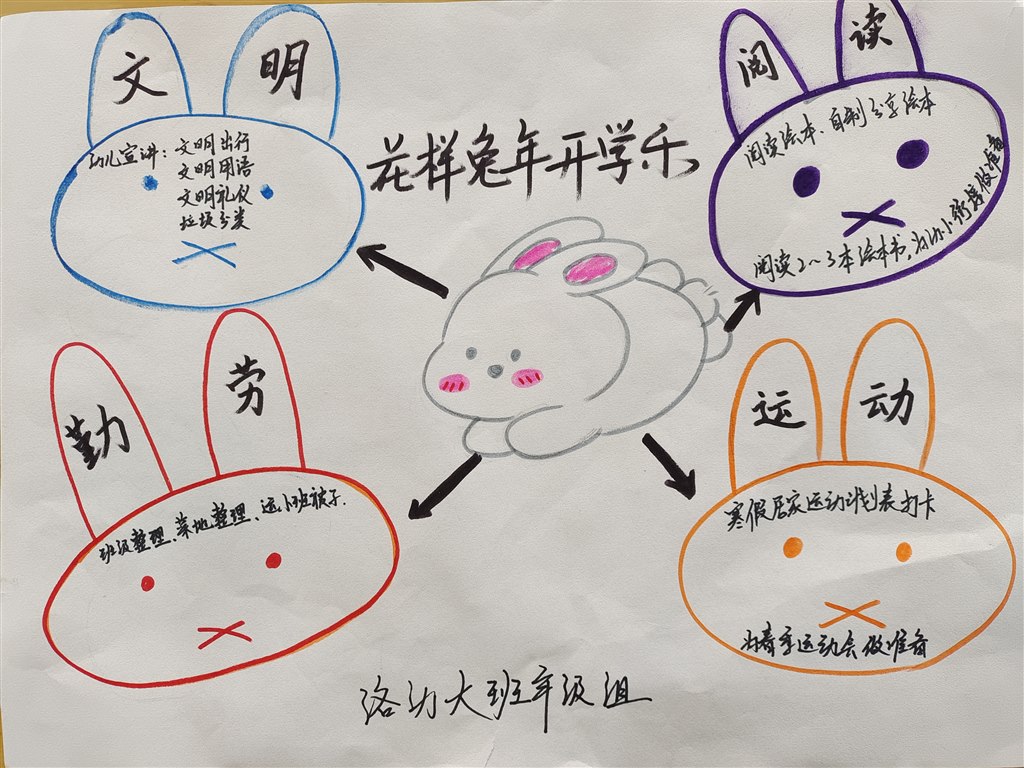 文明
幼儿宣讲：文明出行
文明用语
文明礼仪
垃圾分类
花样兔年开学乐
阅读
阅读绘本、自制分享绘本
阅读2～3本绘本书，为幼小衔接做准备
勤劳
班级整理、菜地整理、运小班被子.
运动
寒假居家运动计划表打卡
为春季运动会做准备
洛幼大班年级组